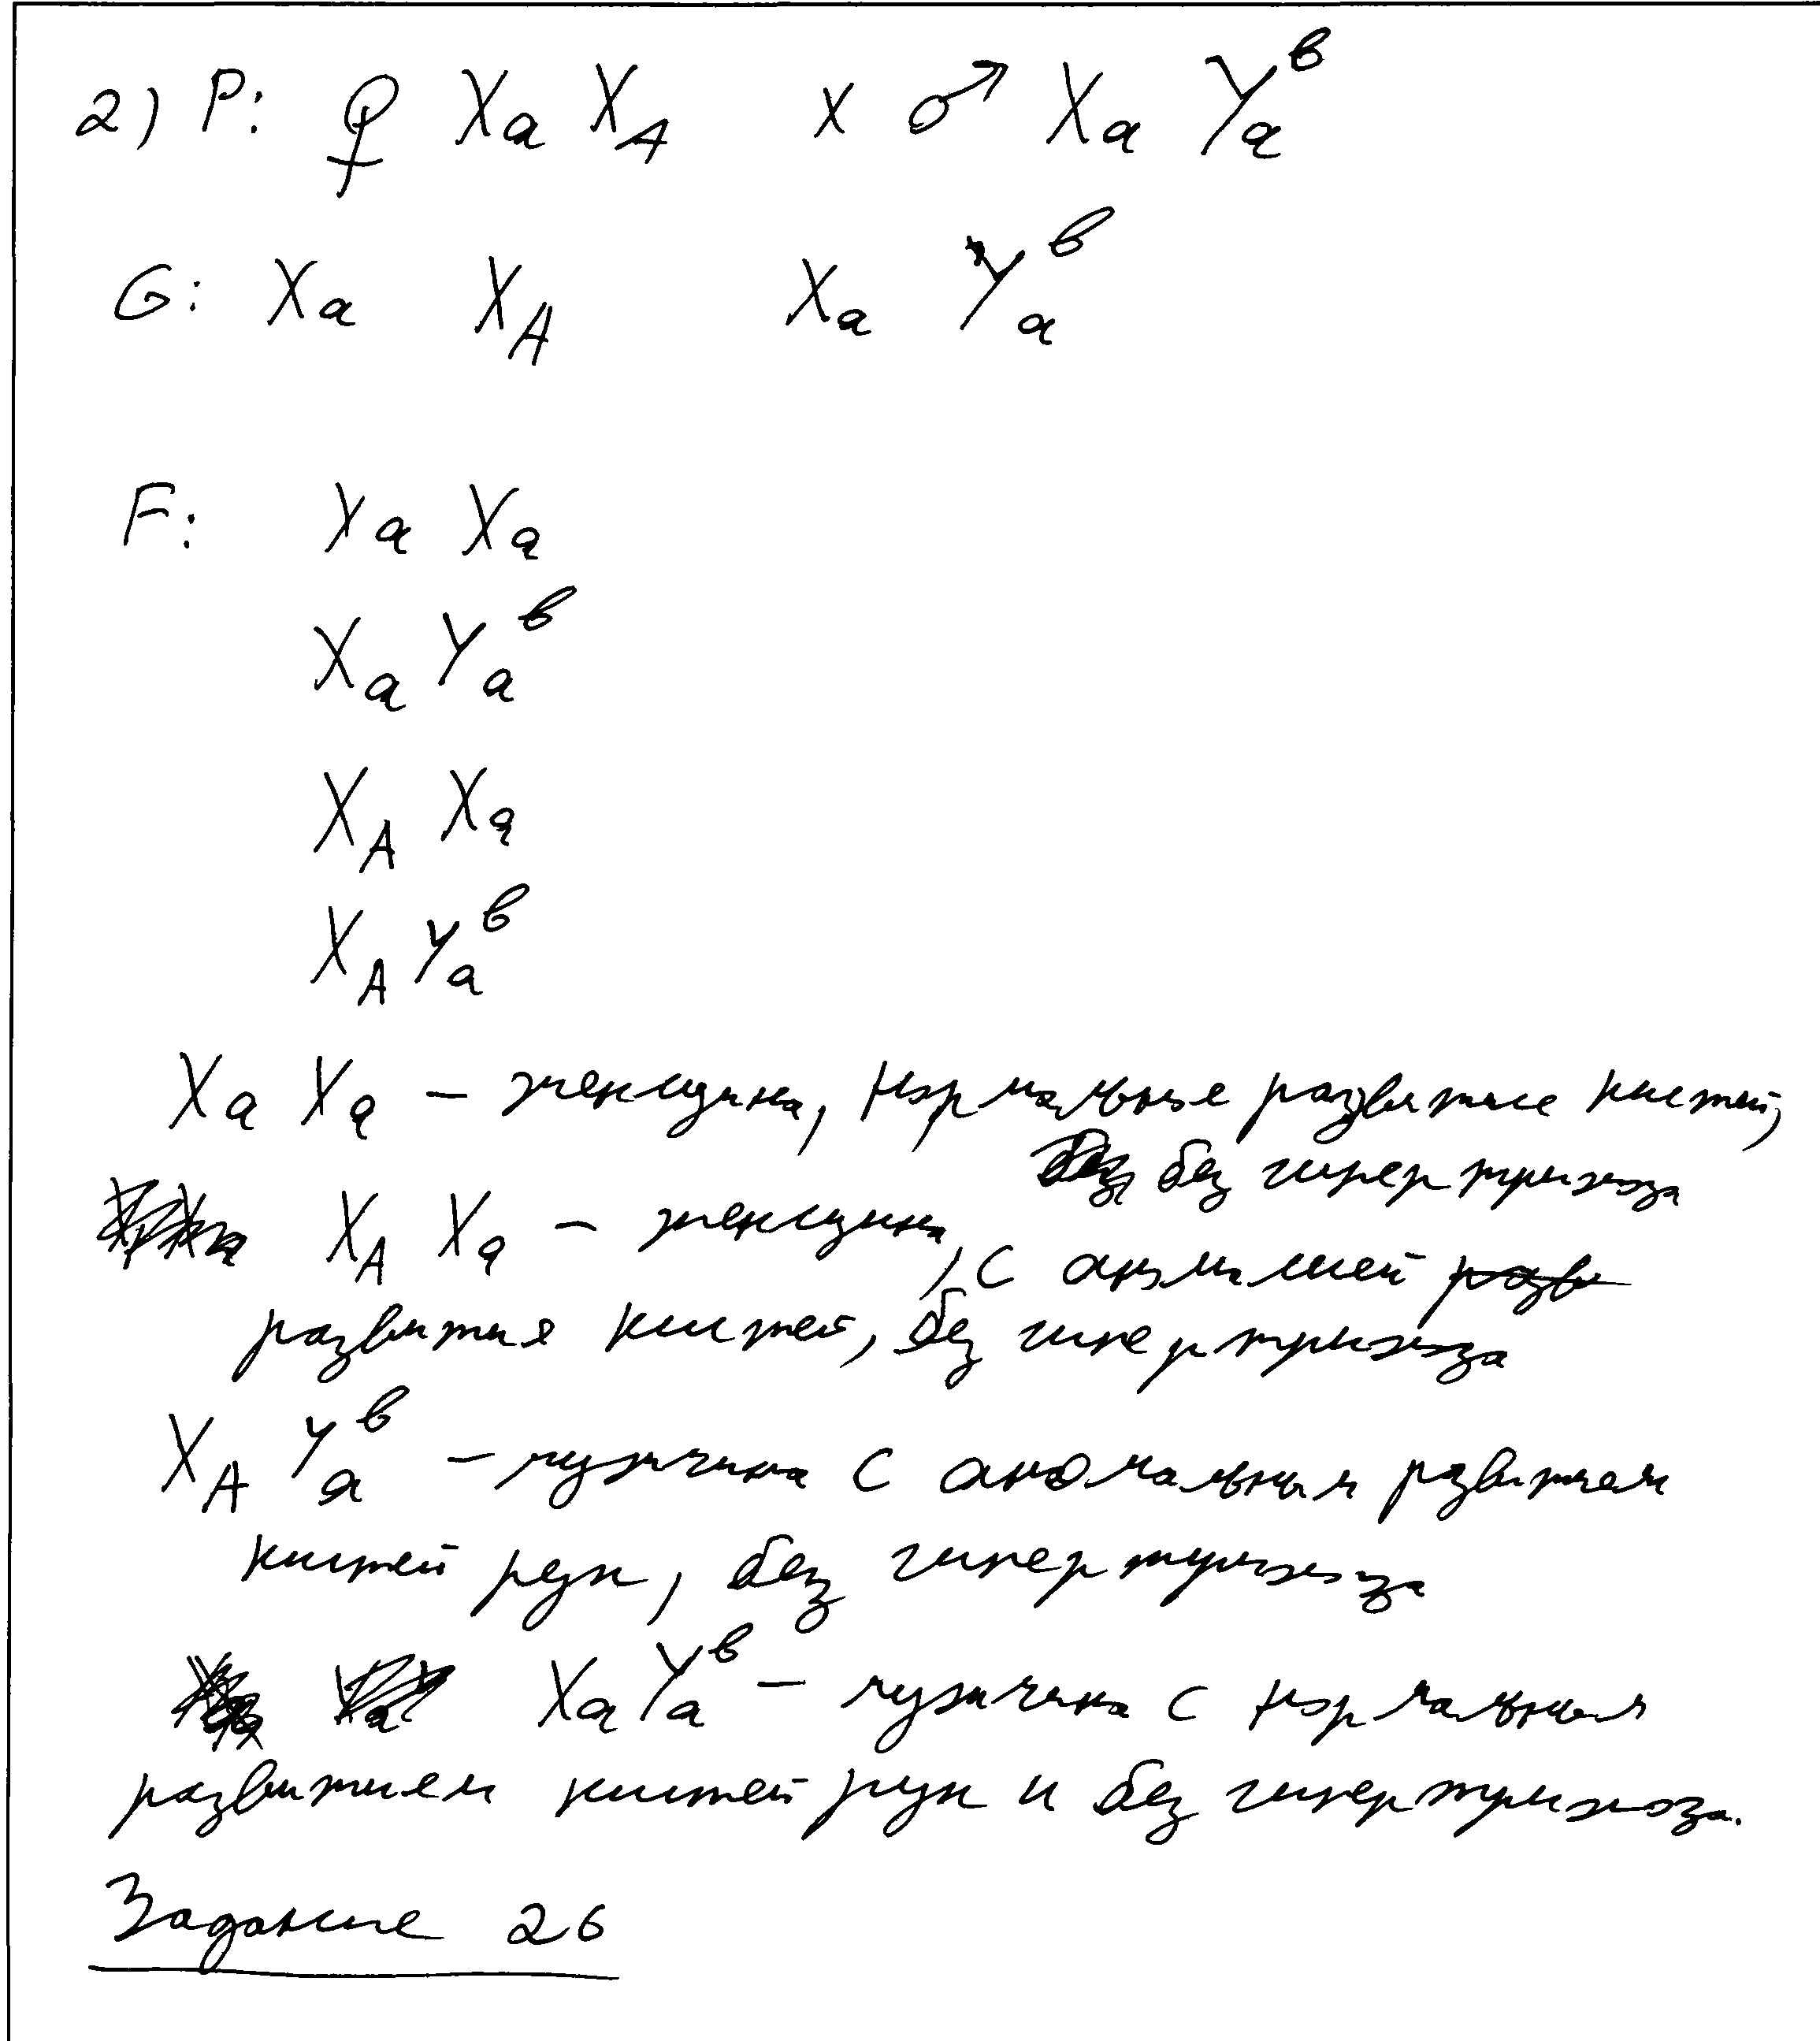 2) P: ♀ Xa XA x ♂ Xa Yaᵇ
G: Xa XA Xa Yaᵇ
F: Xa Xa
Xa Yaᵇ
XA Xa
XA Yaᵇ
Xa Xa – женщина, нормальное развитие кистей,
без гипертрихоза
XA Xa – женщина, с аномалией
развития кистей, без гипертрихоза
XA Yaᵇ – мужчина с аномальным развитием
кистей рук, без гипертрихоза
Xa Yaᵇ – мужчина с нормальным
развитием кистей рук и без гипертрихоза.
Задание 26